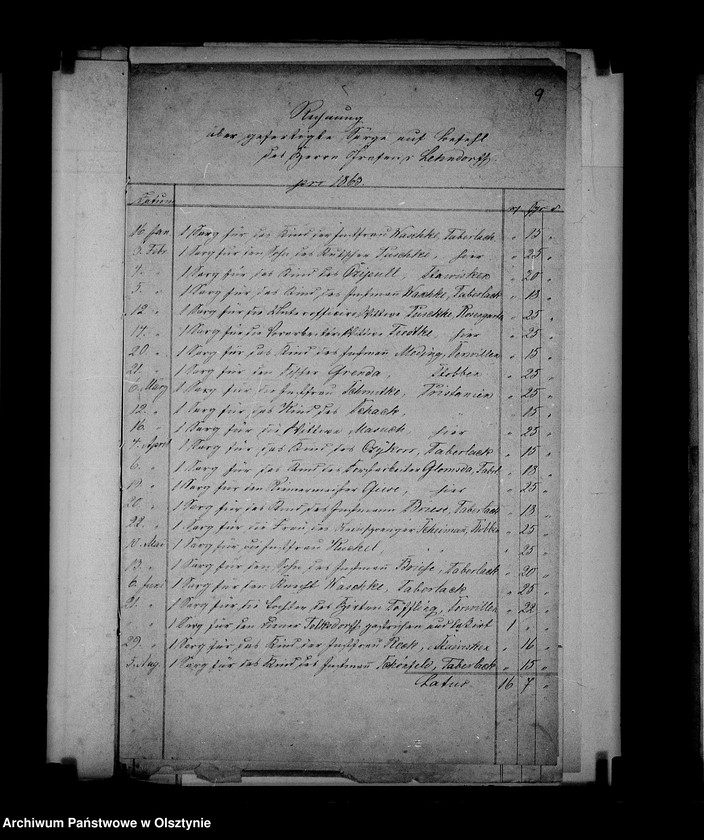 9
Rechnung
über gefertigte Särge auf Befehl
des Herrn Grafen v Lehndorff.
pro 1863.
Datum rt. Sgr. d.
16. Jan. 1 Sarg für das Kind der Instfrau Waschke, Taberlack " 15 "
3. Febr. 1 Sarg für den Sohn des Kutscher Puschke, hier " 25 "
4. " 1 Sarg für das Kind des Czipull, " 20 "
5. " 1 Sarg für das Kind des Instmann Waschke, Taberlack " 18 "
12 " 1 Sarg für die Unteroffiziers Wittwe Puschke, Rosengarten " 25 "
17. " 1 Sarg für die Vorarbeiter Wittwe hier " 25 "
20 " 1 Sarg für das Kind des Instmann Moding, " 15 "
21. " 1 Sarg für den Grenda, Stobben " 25 "
6. März 1 Sarg für die Instfrau Schmidtke, " 25 "
12. " 1 Sarg für das Kind des Schack, " " 15 "
16. " 1 Sarg für die Wittwe Masuch, hier " 25 "
4. April 1 Sarg für das Kind des Taberlack " 15 "
6. " 1 Sarg für das Kind des Glomsda, Tabl. " 18 "
19. " 1 Sarg für den Riemermeister hier " 25 "
20. " 1 Sarg für das Kind des Instmann Briese, Taberlack " 18 "
22. " 1 Sarg für die Frau des Stobben " 25 "
11. Mai 1 Sarg für die Instfrau " " 25 "
13. " 1 Sarg für den Sohn des Instmann Taberlack " 20 "
6. Juni 1 Sarg für den Knecht Waschke, Taberlack " 25 "
21. " 1 Sarg für die Tochter des Hirten " 22 "
" " 1 Sarg für den Diener Folksdorff, gestrichen und lakirt 1 " "
29. " 1 Sarg für das Kind der Instfrau " 16 "
5. Aug. 1 Sarg für das Kind des Instmann Schönfeld, Taberlack " 15 "
Latus. 16 7 "
Archiwum Państwowe w Olsztynie